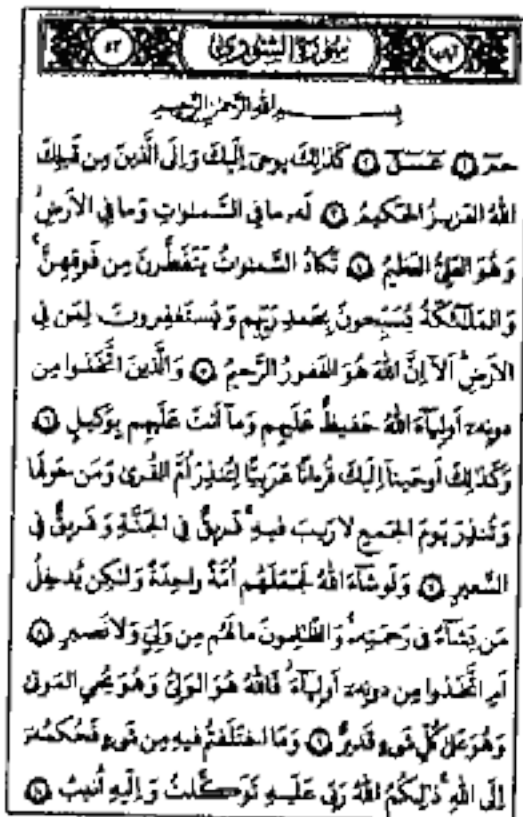 سورة الشورى ٤٢
بسم الله الرحمن الرحيم
حمٓ ۝١ عٓسٓقٓ ۝٢ كَذَٰلِكَ يُوحِي إِلَيْكَ وَإِلَى الَّذِينَ مِن قَبْلِكَ
اللَّهُ الْعَزِيزُ الْحَكِيمُ ۝٣ لَهُ مَا فِي السَّمَٰوَاتِ وَمَا فِي الْأَرْضِ
وَهُوَ الْعَلِيُّ الْعَظِيمُ ۝٤ تَكَادُ السَّمَٰوَاتُ يَتَفَطَّرْنَ مِن فَوْقِهِنَّ
وَالْمَلَٰئِكَةُ يُسَبِّحُونَ بِحَمْدِ رَبِّهِمْ وَيَسْتَغْفِرُونَ لِمَن فِي
الْأَرْضِ أَلَا إِنَّ اللَّهَ هُوَ الْغَفُورُ الرَّحِيمُ ۝٥ وَالَّذِينَ اتَّخَذُوا مِن
دُونِهِ أَوْلِيَاءَ اللَّهُ حَفِيظٌ عَلَيْهِمْ وَمَا أَنتَ عَلَيْهِم بِوَكِيلٍ ۝٦
وَكَذَٰلِكَ أَوْحَيْنَا إِلَيْكَ قُرْءَانًا عَرَبِيًّا لِّتُنذِرَ أُمَّ الْقُرَىٰ وَمَنْ حَوْلَهَا
وَتُنذِرَ يَوْمَ الْجَمْعِ لَا رَيْبَ فِيهِ فَرِيقٌ فِي الْجَنَّةِ وَفَرِيقٌ فِي
السَّعِيرِ ۝٧ وَلَوْ شَاءَ اللَّهُ لَجَعَلَهُمْ أُمَّةً وَٰحِدَةً وَلَٰكِن يُدْخِلُ
مَن يَشَاءُ فِي رَحْمَتِهِ وَالظَّٰلِمُونَ مَا لَهُم مِّن وَلِيٍّ وَلَا نَصِيرٍ ۝٨
أَمِ اتَّخَذُوا مِن دُونِهِ أَوْلِيَاءَ فَاللَّهُ هُوَ الْوَلِيُّ وَهُوَ يُحْيِي الْمَوْتَىٰ
وَهُوَ عَلَىٰ كُلِّ شَيْءٍ قَدِيرٌ ۝٩ وَمَا اخْتَلَفْتُمْ فِيهِ مِن شَيْءٍ فَحُكْمُهُ
إِلَى اللَّهِ ذَٰلِكُمُ اللَّهُ رَبِّي عَلَيْهِ تَوَكَّلْتُ وَإِلَيْهِ أُنِيبُ ۝١٠